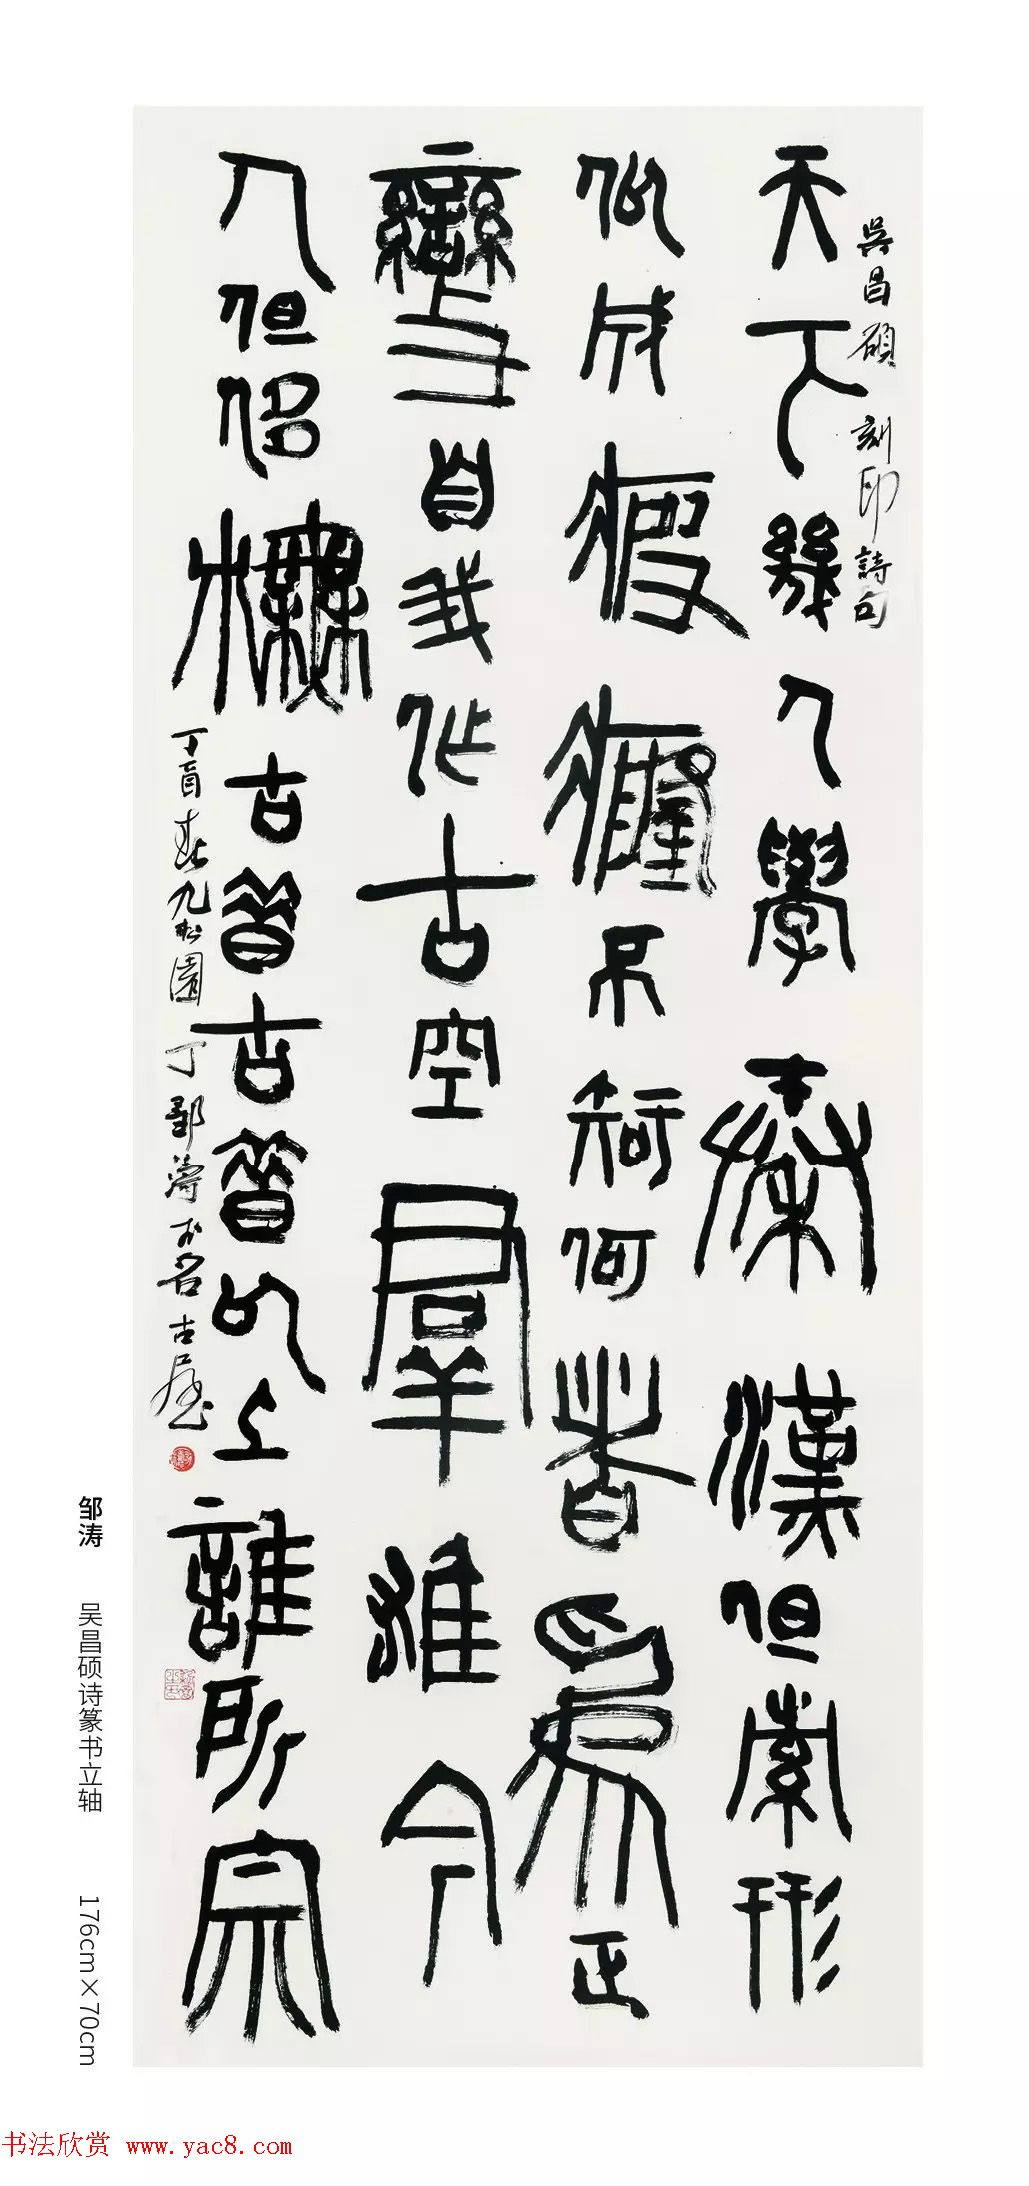 吳昌碩刻印詩句
天下幾人學秦漢但索形
似成疲癃不知何者為正
變自我作古空群雄今
人但侈橅古昔古昔以上誰所宗
丁酉春九松園丁鄒濤於名古屋
邹涛 吴昌硕诗篆书立轴 176cm×70cm
书法欣赏 www.yac8.com